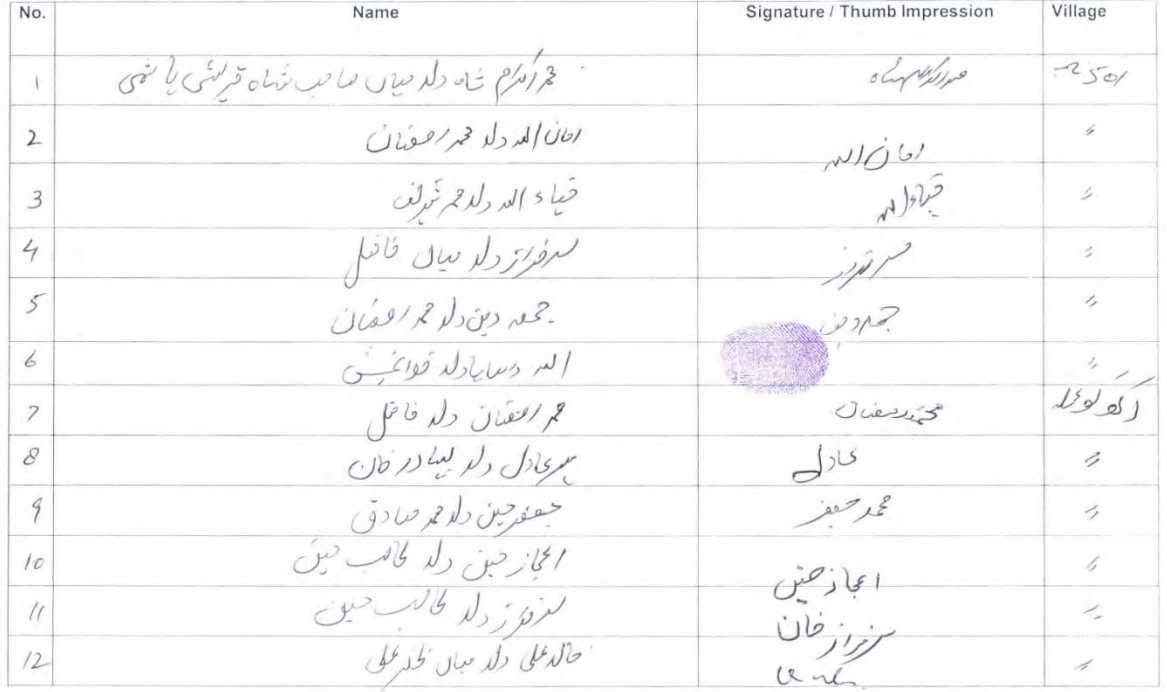 No. Name Signature / Thumb Impression Village
1 محمد اکرام شاہ ولد میاں صاحب شاہ قریشی ہاشمی
2 امان اللہ ولد محمد رمضان امان اللہ 〃
3 ضیاء اللہ ولد محمد شریف ضیاء اللہ 〃
4 سرفراز ولد میاں فاضل سرفراز 〃
5 جمعہ دین ولد محمد رمضان جمعہ دین 〃
6 اللہ وسایا ولد 〃
7 محمد رمضان ولد فاضل محمد رمضان
8 ولد خان عادل 〃
9 جعفر حسین ولد محمد صادق محمد جعفر 〃
10 اعجاز حسین ولد طالب حسین اعجاز حسین 〃
11 سرفراز ولد طالب حسین سرفراز خان 〃
12 خالد علی ولد میاں علی 〃